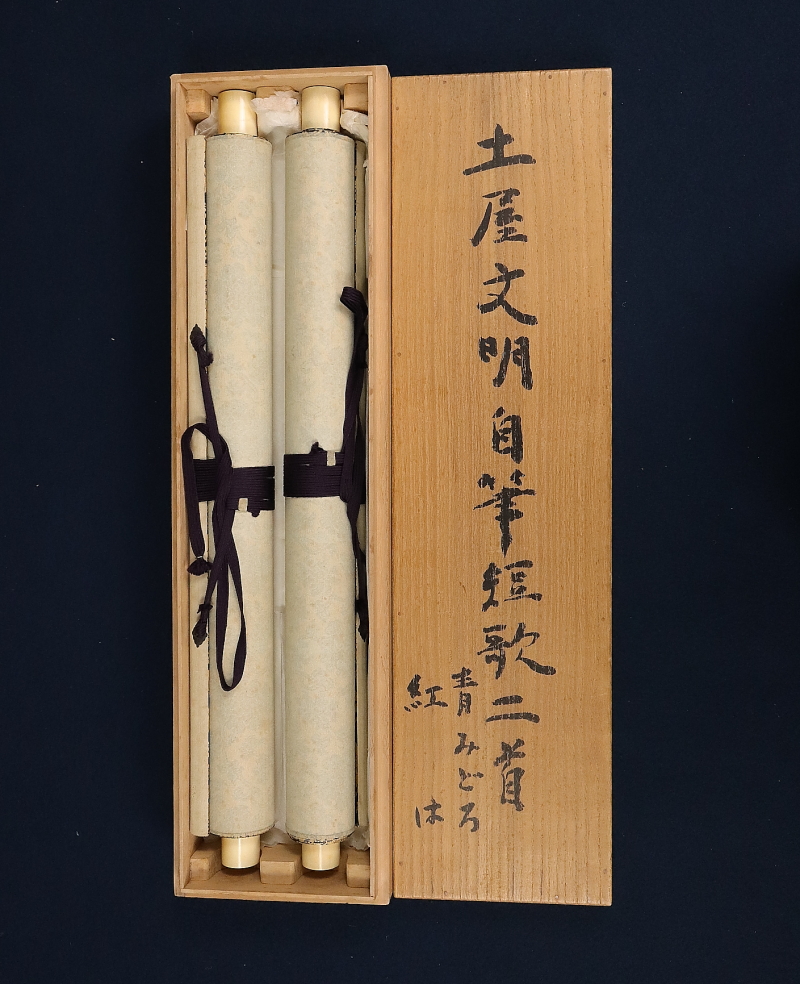 土屋文明自筆短歌二首
青みどろ
紅は